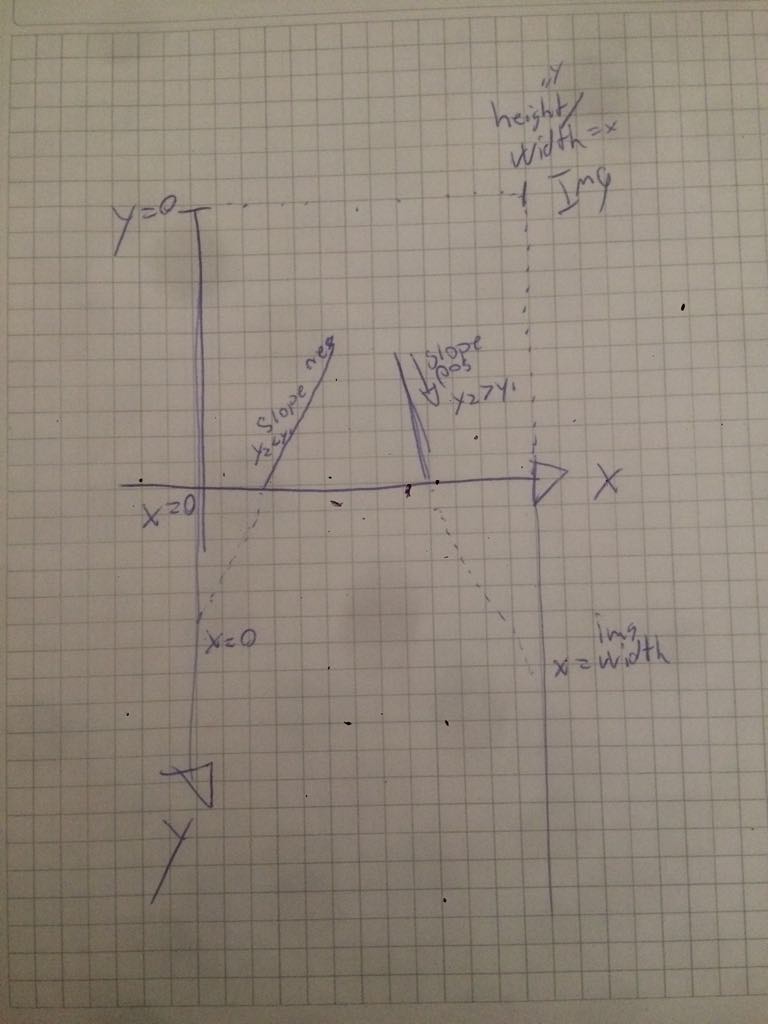 =Y
height/
width=x
Img
Y=0
Slope neg
Y2<Y1
Slope
pos
Y2>Y1
X=0
X
X=0
img
X=width
Y